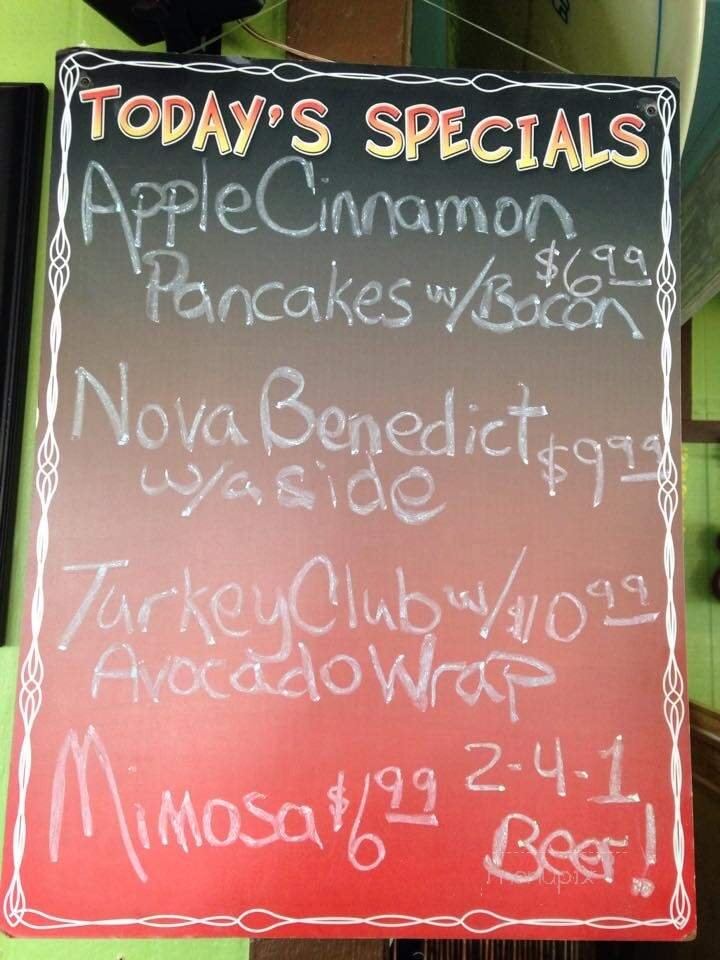 TODAY'S SPECIALS
Apple Cinnamon
Pancakes w/Bacon $6.99
Nova Benedict $9.99
w/a side
Turkey Club w/ $10.99
Avocado Wrap
Mimosa $6.99 2-4-1
Beer!
menupix